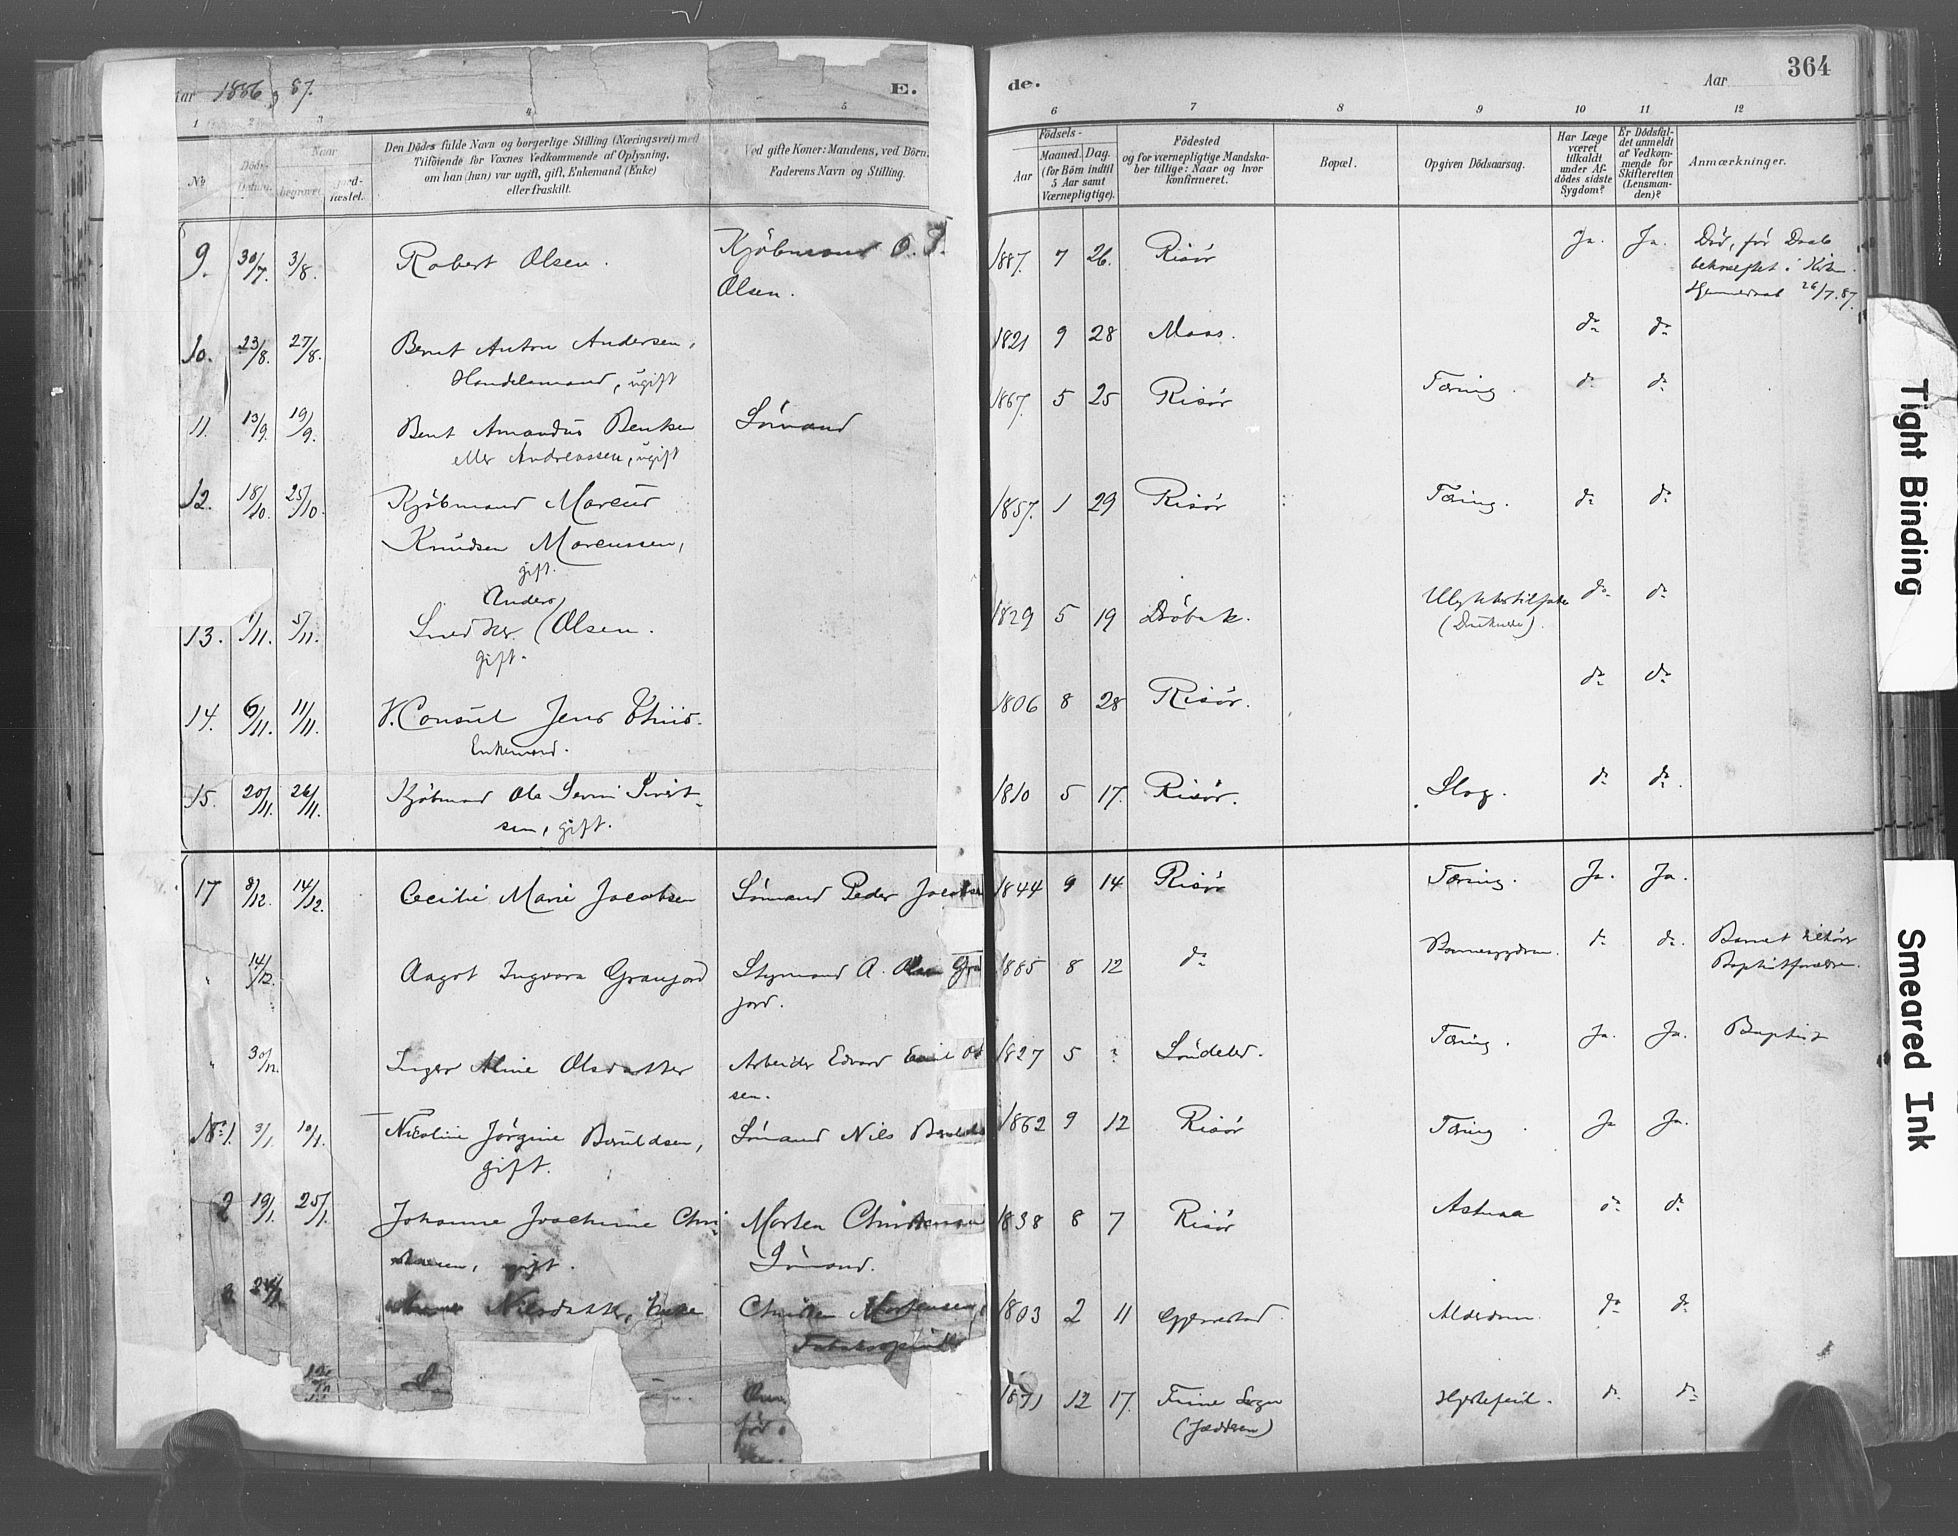 Aar 1886, 87.
E.
de.
Aar
364
1 2 3 4 5 6 7 8 9 10 11 12
No
Døds-Datum.
Naar
begravet.
jord-fæstet.
Den Dødes fulde Navn og borgerlige Stilling (Næringsvei) med
Tilføiende for Voxnes Vedkommende af Oplysning,
om han (hun) var ugift, gift, Enkemand (Enke)
eller fraskilt.
Ved gifte Koner: Mandens, ved Børn:
Faderens Navn og Stilling.
Fødsels-
Aar
Maaned. Dag.
(for Børn indtil
5 Aar samt
Værnepligtige).
Fødested
og for værnepligtige Mandska-
ber tillige: Naar og hvor
konfirmeret.
Bopæl.
Opgiven Dødsaarsag.
Har Læge
været
tilkaldt
under Af-
dødes sidste
Sygdom?
Er Dødsfal-
det anmeldt
af Vedkom-
mende for
Skifteretten
(Lensman-
den)?
Anmærkninger.
9. 30/7. 3/8. Robert Olsen. Kjøbmand O. P. 1887. 7 26. Risör Ja. Ja. Död, før Daab
Olsen. bekræftet i Kirken
Hjemmedaab 26/7.87.
10. 23/8. 27/8. Bernt Anton Andersen, 1821 9 28 Moss. do do
Handelsmand, ugift
11. 13/9. 19/9. Bent Amandus Bentsen Sömand 1867. 5 25 Risör Tæring. do do
eller Andreassen, ugift
12. 18/10. 25/10. Kjøbmand Marcus 1857. 1 29 Risör Tæring. do do
Knudsen Marcussen,
gift.
Anders
13. 1/11. 5/11. Snedker Olsen. 1829 5 19 Dröbak. Ulykkestilfælde do do
gift. (Druknede).
14. 6/11. 11/11. V. Consul Jens Thiis. 1806 8 28 Risör. do do
Enkemand.
15. 20/11. 26/11. Kjøbmand Ole Sivert- 1810 5 17. Risör. Slag. do do
sen, gift.
17 8/12. 14/12. Cecilie Marie Jacobsen Sömand Peder Jacobsen 1844 9 14 Risör Tæring. Ja. Ja.
" 14/12. Aagot Ingvora Granjord Styrmand A. Olsen Gran 1885 8 12 do Barnesygdom. do do. Barnet tilhører
jord. Baptistforældre.
" 30/12. Inger Aline Olsdatter Arbeider Edvard Emil 1827 5 ? Söndeled. Tæring. Ja. Ja. Baptist
sen.
No 1. 3/1. 10/1. Nicoline Jörgine Beruldsen, Sömand Nils 1862 9 12 Risör Tæring Ja Ja.
gift.
2 19/1. 25/1. Johanne Joachime Chri Morten Christensen 1838 8 7 Risör Astma do do
gift. Sömand.
3 Nilsdatter, Enke Christen Mortensen, 1803 2 11 Gjerrestad. Alderdom. do do
1871 12 17. Time Sogn Hjertefeil. do do
(Jæderen)
Tight Binding
Smeared Ink